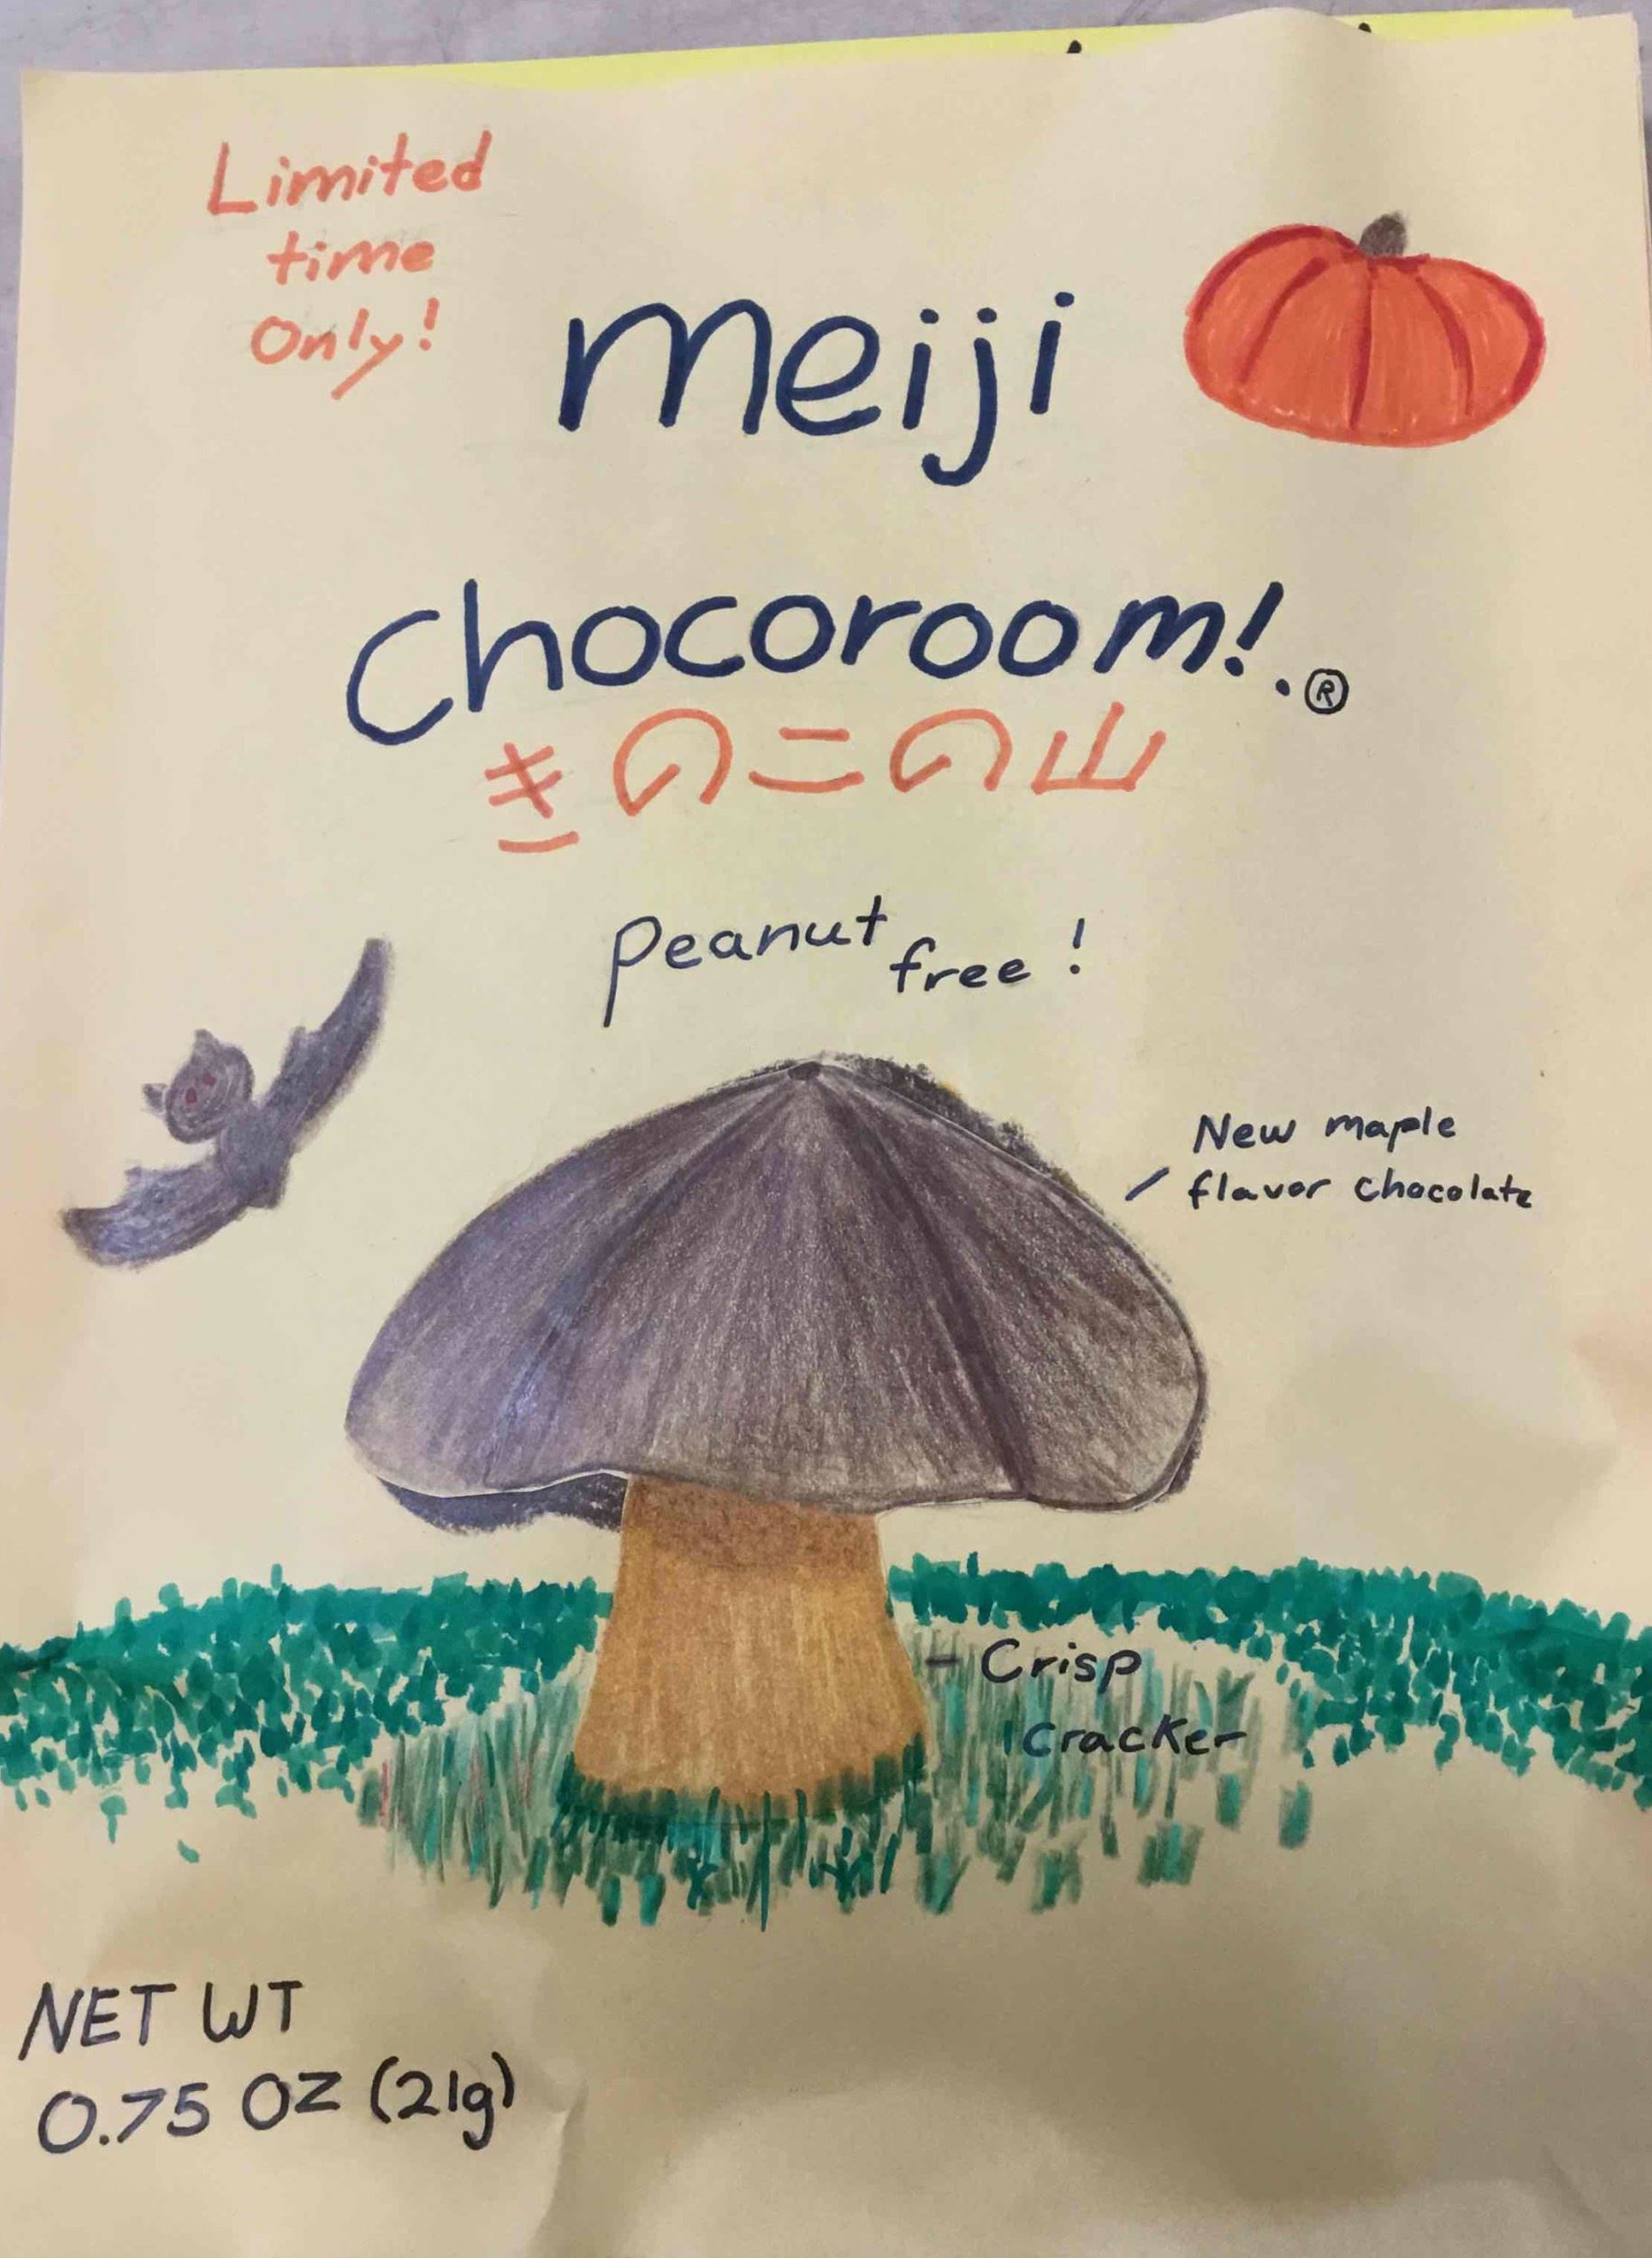 Limited
time
Only!
meiji
Chocoroom!.®
きのこの山
Peanut free!
New maple
flavor chocolate
- Crisp
cracker
NET WT
0.75 OZ (21g)